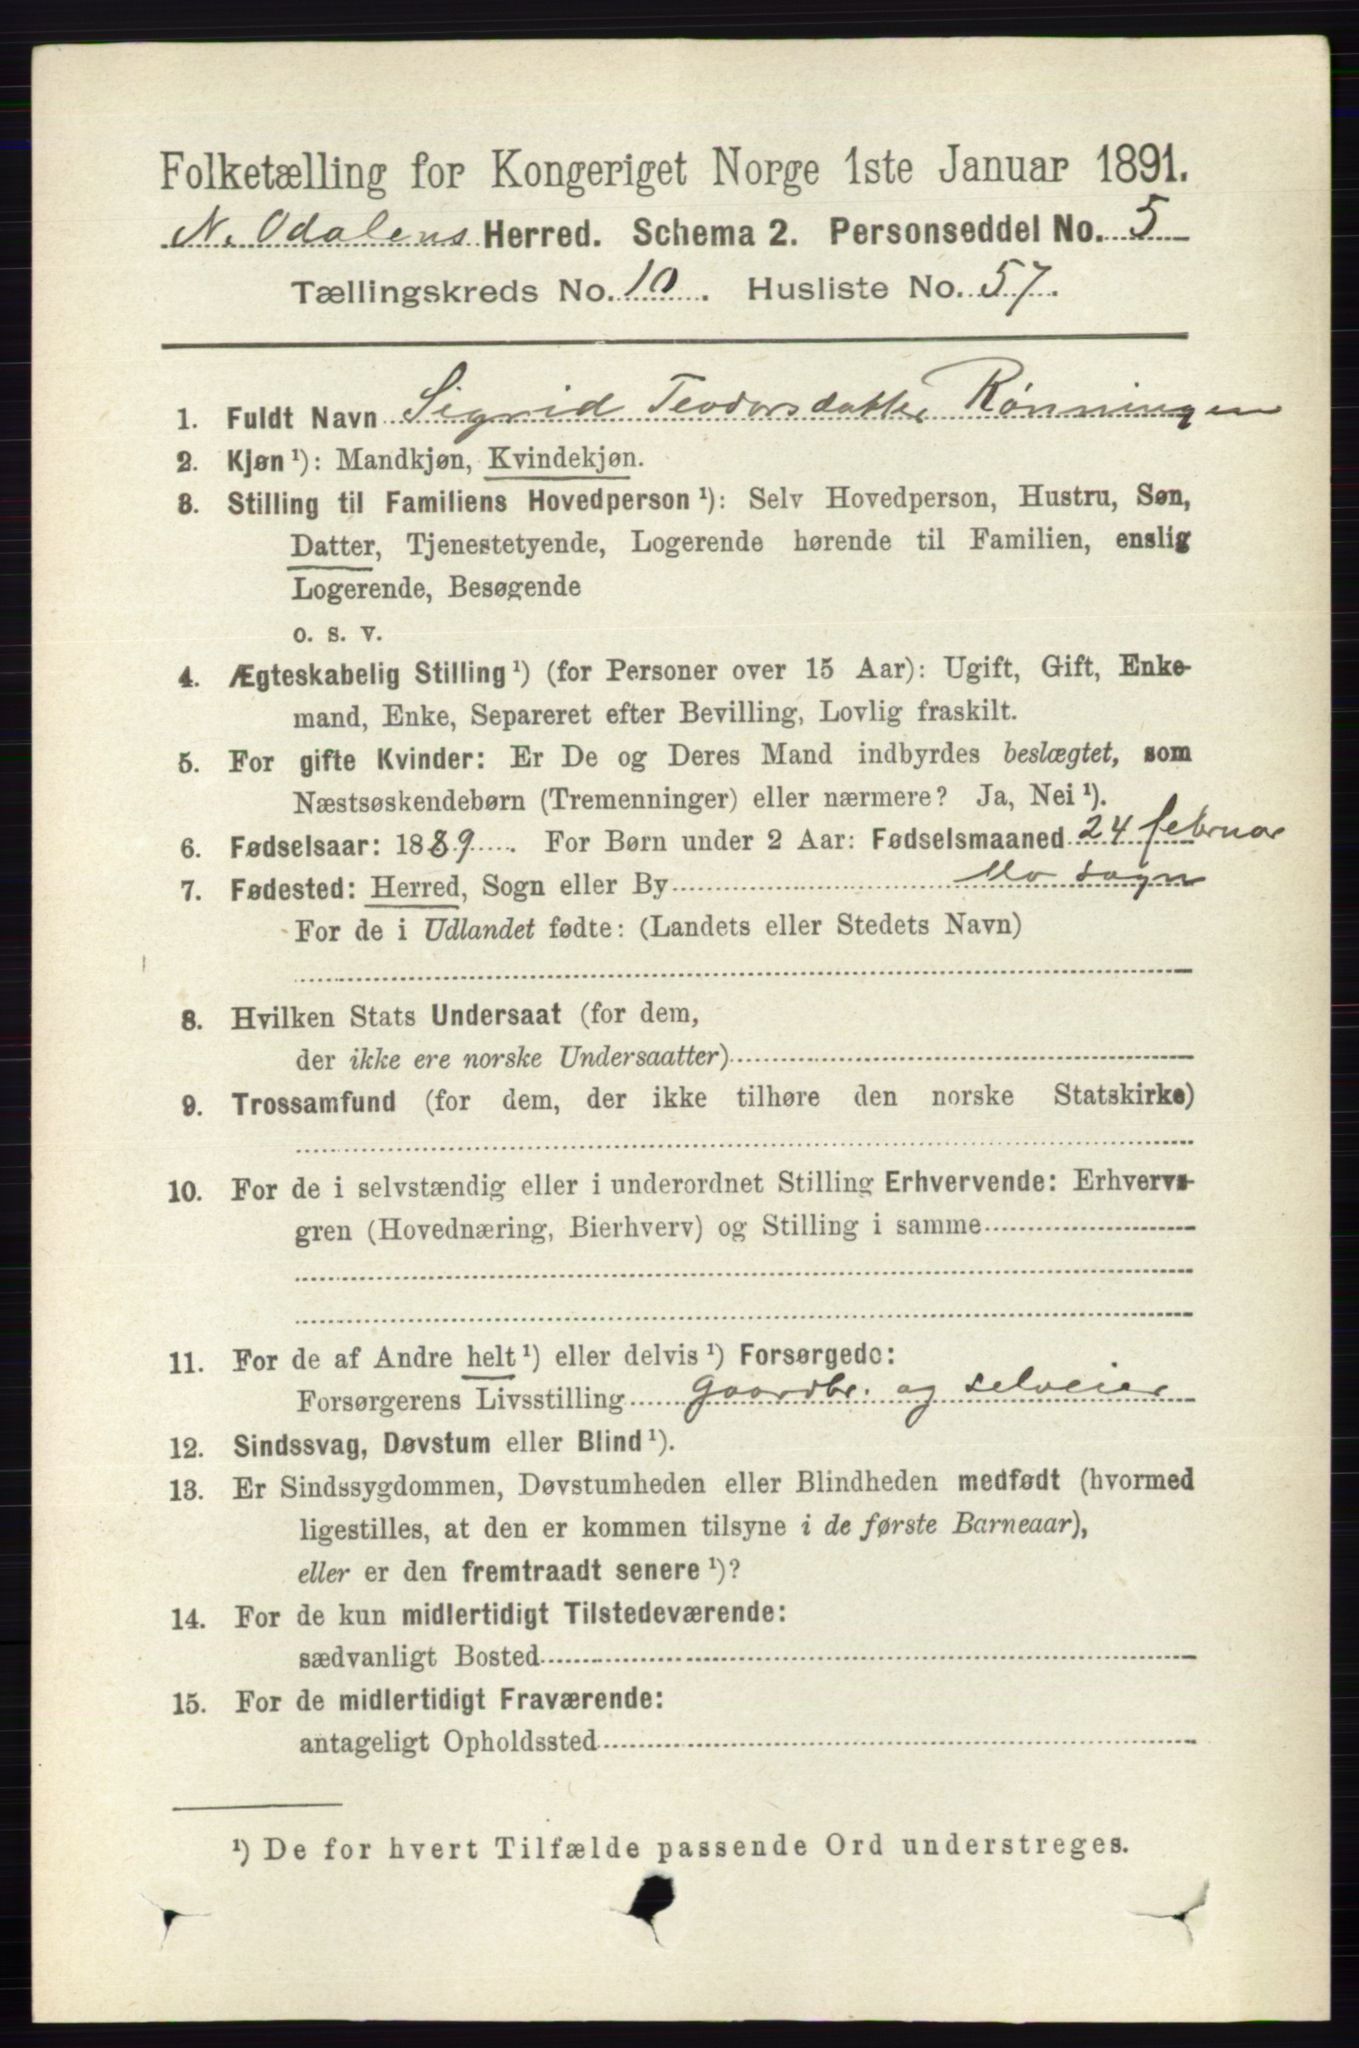 Folketælling for Kongeriget Norge 1ste Januar 1891.
N. Odalens Herred. Schema 2. Personseddel No. 5
Tællingskreds No. 10. Husliste No. 57.
1. Fuldt Navn Sigrid Teodorsdatter Rønningen
2. Kjøn ¹): Mandkjøn, Kvindekjøn.
3. Stilling til Familiens Hovedperson ¹): Selv Hovedperson, Hustru, Søn,
Datter, Tjenestetyende, Logerende hørende til Familien, enslig
Logerende, Besøgende
o. s. v.
4. Ægteskabelig Stilling ¹) (for Personer over 15 Aar): Ugift, Gift, Enke-
mand, Enke, Separeret efter Bevilling, Lovlig fraskilt.
5. For gifte Kvinder: Er De og Deres Mand indbyrdes beslægtet, som
Næstsøskendebørn (Tremenninger) eller nærmere? Ja, Nei ¹).
6. Fødselsaar: 1889. For Børn under 2 Aar: Fødselsmaaned 24 februar
7. Fødested: Herred, Sogn eller By Mo sogn
For de i Udlandet fødte: (Landets eller Stedets Navn)
8. Hvilken Stats Undersaat (for dem,
der ikke ere norske Undersaatter)
9. Trossamfund (for dem, der ikke tilhøre den norske Statskirke)
10. For de i selvstændig eller i underordnet Stilling Erhvervende: Erhvervs-
gren (Hovednæring, Bierhverv) og Stilling i samme
11. For de af Andre helt ¹) eller delvis ¹) Forsørgede:
Forsørgerens Livsstilling Gaardbr. og selveier
12. Sindssvag, Døvstum eller Blind ¹).
13. Er Sindssygdommen, Døvstumheden eller Blindheden medfødt (hvormed
ligestilles, at den er kommen tilsyne i de første Barneaar),
eller er den fremtraadt senere ¹)?
14. For de kun midlertidigt Tilstedeværende:
sædvanligt Bosted
15. For de midlertidigt Fraværende:
antageligt Opholdssted
¹) De for hvert Tilfælde passende Ord understreges.